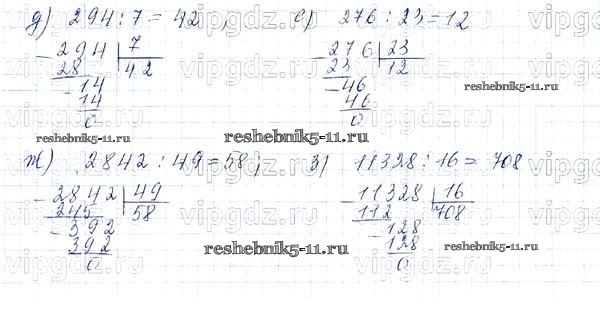 д) 294 : 7 = 42 , е) 276 : 23 = 12
- 294 | 7 - 276 | 23
28 | 42 23 | 12
- 14 - 46
14 46
0 0
reshebnik5-11.ru reshebnik5-11.ru
reshebnik5-11.ru
ж) 2842 : 49 = 58 ; з) 11328 : 16 = 708
- 2842 | 49 - 11328 | 16
245 | 58 112 | 708
- 392 - 128
392 128
0 0
reshebnik5-11.ru reshebnik5-11.ru
vipgdz.ru